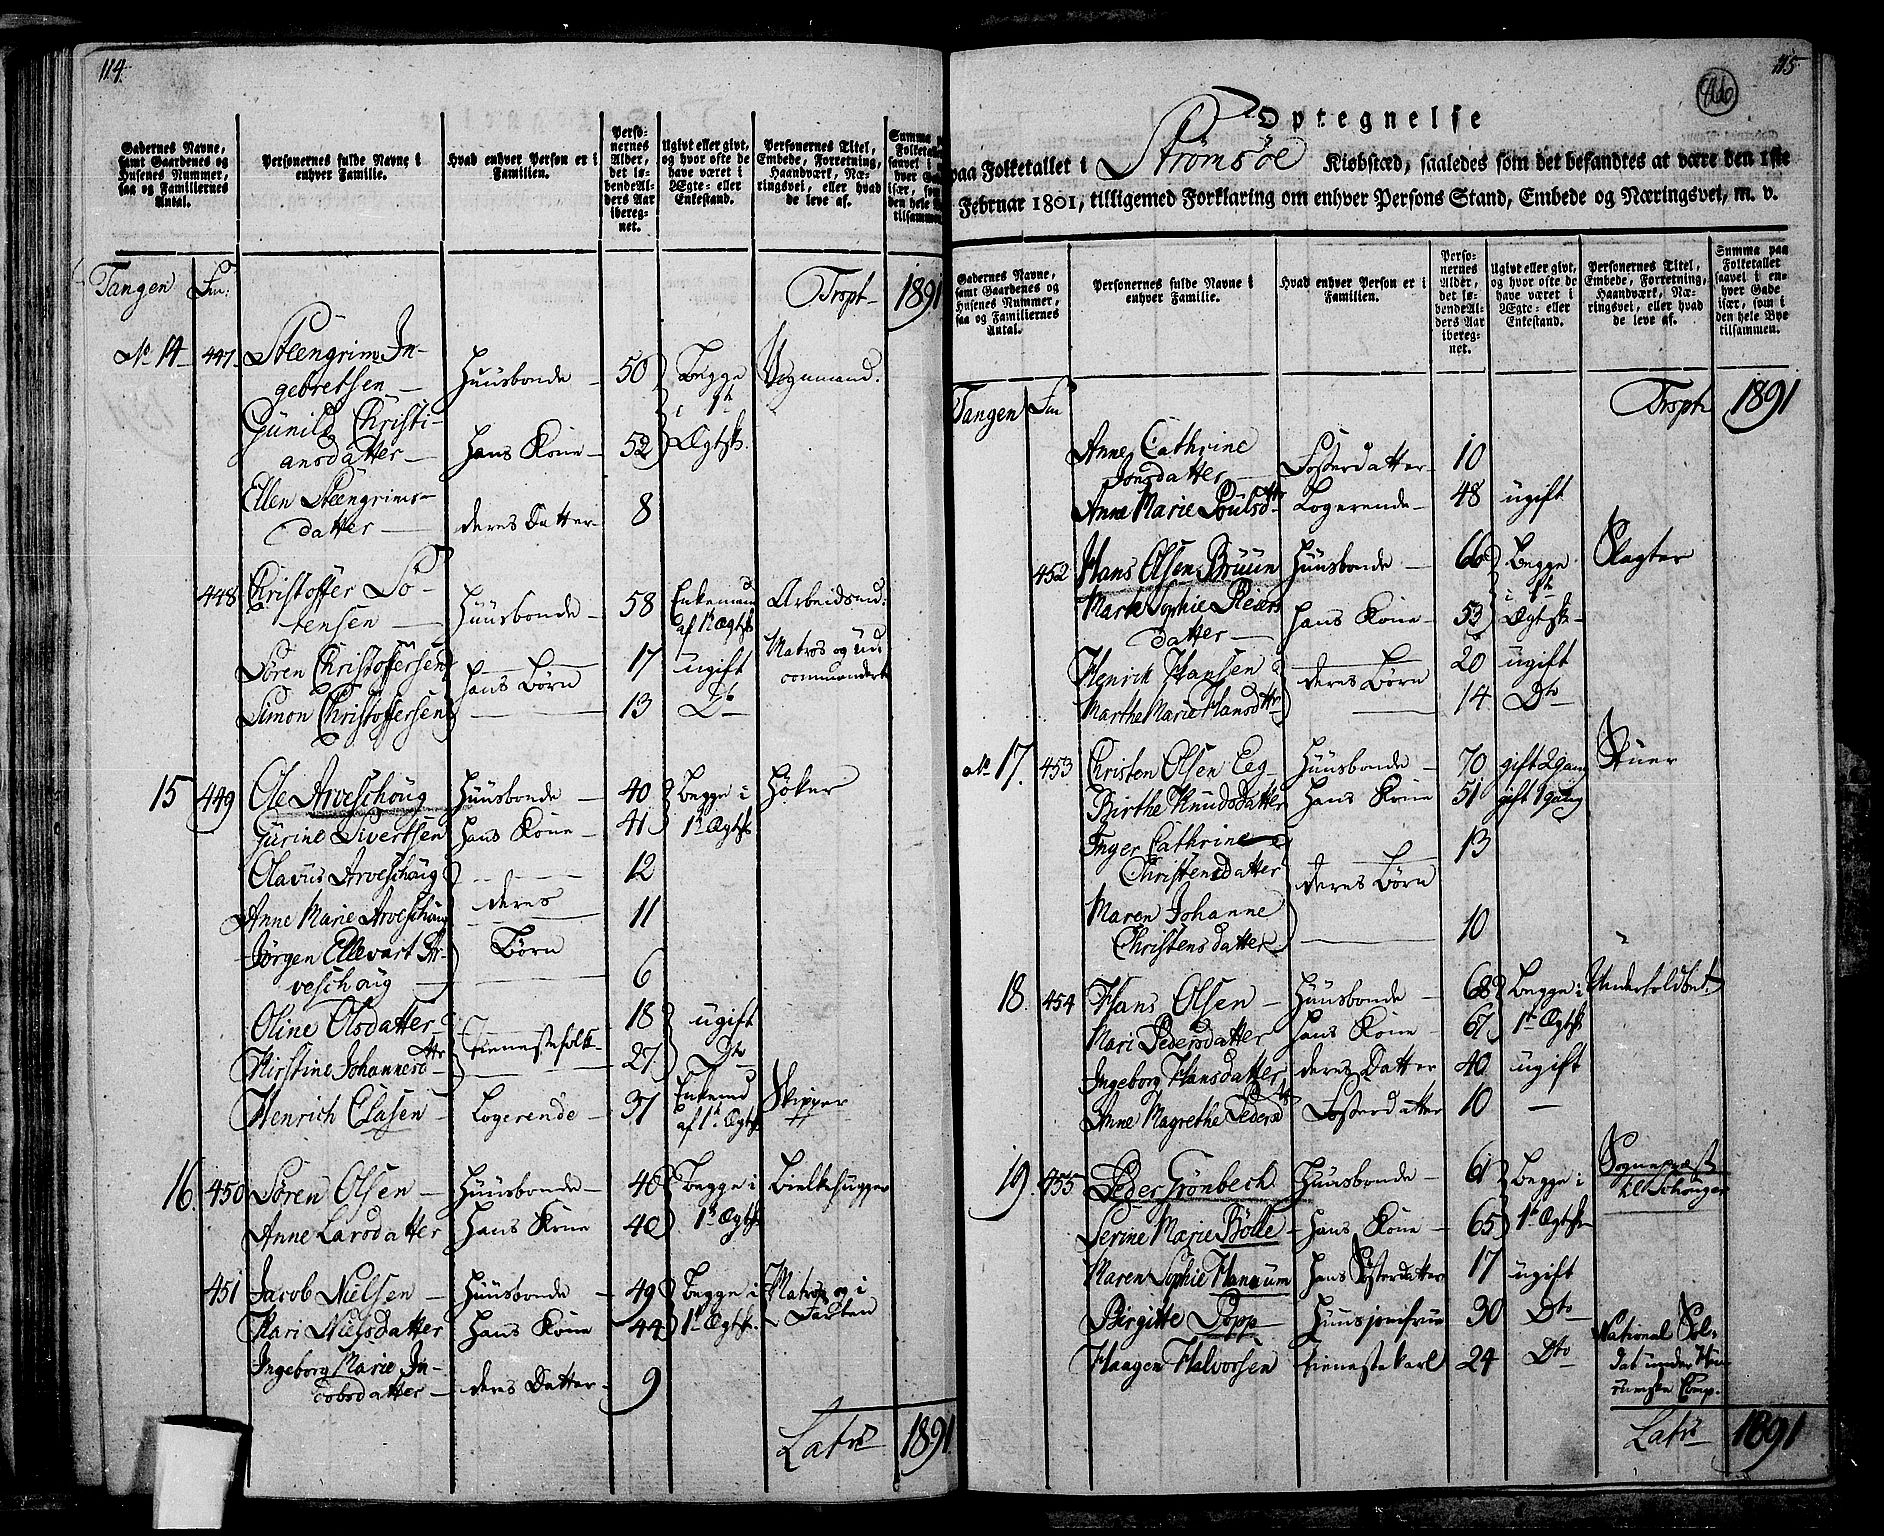 114.
Gadernes Navne, samt Gaardenes og Husenes Nummer, saa og Familiernes Antal.
Personernes fulde Navne i enhver Familie.
Hvad enhver Person er i Familien.
Personernes Alder, det løbendeAlders Aar iberegnet.
Ugivt eller givt, og hvor ofte de have været i Ægte- eller Enkestand.
Personernes Titel, Embede, Forretning, Haandværk, Næringsvei, eller hvad de leve af.
Summa paa Folketallet saavel i enhver Gade især, som i den hele Bye tilsammen.
Tangen Fm: Trspt 1891
No 14 447 Steengrim In-
gebretsen — Huusbonde — 50 Begge Vognmand.
Gunild Christi- i 1te
ansdatter — Hans Kone — 52 Ægtsk.
Ellen Steengrims-
datter — deres Datter 8
448 Christoffer To-
tensen — Huusbonde — 58 Enkemand af 1te Ægtsk Arbeidsmd:
Søren Christoffersen hans Børn 17 ugift Matros og ud-
commandert
Simon Christoffersen 13 Dto
15 449 Ole Arveschoug Huusbonde — 40 Begge i Høker
Gurine Sivertsen Hans Kone — 41 1te Ægtsk.
Olavus Arveschoug 12
Anne Marie Arveschoug deres 11
Jørgen Ellevart Ar- Børn
veschoug — 6
Oline Olsdatter tienestefolk 18 ugift
Kirstine Johannesdttr 27 Dto
Henrich Clasen — Logerende — 37 Enkemd af 1te Ægtsk Skipper
16. 450 Søren Olsen — Huusbonde — 40 Begge i Bielkehugger
Anne Larsdatter Hans Kone 40 1te Ægtsk
451 Jacob Nielsen — Huusbonde — 49 Begge i Matros og i
Kari Nielsdatter Hans Kone 44 1te Ægtsk. Farten
Ingeborg Marie Ja-
cobsdatter — deres Datter 9
Latus 1891
115
Optegnelse
paa Folketallet i Strømsøe Kiøbstæd, saaledes som det befandtes at være den 1ste
Februar 1801, tilligemed Forklaring om enhver Persons Stand, Embede og Næringsvei, m. v.
Gadernes Navne, samt Gaardenes og Husenes Nummer, saa og Familiernes Antal.
Personernes fulde Navne i enhver Familie.
Hvad enhver Person er i Familien.
Personernes Alder, det løbendeAlders Aar iberegnet.
Ugivt eller givt, og hvor ofte de have været i Ægte- eller Enkestand.
Personernes Titel, Embede, Forretning, Haandværk, Næringsvei, eller hvad de leve af.
Summa paa Folketallet saavel i enhver Gade især, som i den hele Bye tilsammen.
Tangen Fm Trspt 1891
Anne Cathrine
Jonsdatter — Fosterdatter — 10
Anne Marie Poulsdttr Logerende — 48 ugift
452 Hans Olsen Bruun Huusbonde — 66 Begge Slagter
i 1te
Marte Sophie Reiers
datter — Hans Kone — 53 Ægtsk —
Henrich Hansen deres Børn 20 ugift
Marthe Marie Hansdttr 14 Dto
No 17. 453 Christen Olsen Eeg — Huusbonde — 70 gift 2 gang Stuer
Birthe Knudsdatter Hans Kone 51 gift 1 gang
Inger Cathrine 13
Christensdatter deres Børn
Maren Johanne
Christensdatter 10
18. 454 Hans Olsen — Huusbonde — 68 Begge i Underholdet
Mari Pedersdatter Hans Kone — 61 1te Ægtsk
Ingeborg Hansdatter deres Datter 40 ugift
Anne Magrethe Pedersd Fosterdatter 10 —
19. 455 Peder Grønbech Huusbonde — 61 Begge i Sognepræst
til Schouger
Serine Marie Bølle — Hans Kone — 65 1te Ægtsk —
Maren Sophie Hanaum hans Søsterdatter 17 ugift
Birgitte Dopp — Huusjomfrue 30 Dto
Haagen Halvorsen tienestekarl 24 Dto National Sol-
dat under Hu-
rumske Comp.
Latus 1891